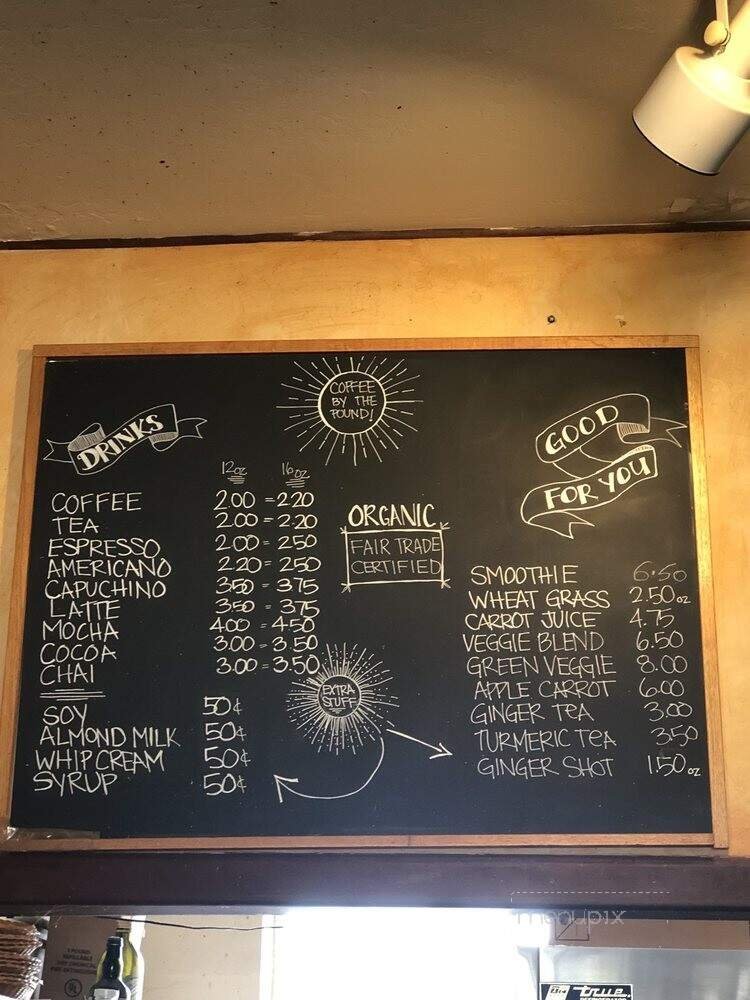 COFFEE
BY THE
POUND!
DRINKS
12oz 16oz
COFFEE 2.00 = 2.20
TEA 2.00 = 2.20
ESPRESSO 2.00 = 2.50
AMERICANO 2.20 = 2.50
CAPUCHINO 3.50 = 3.75
LATTE 3.50 = 3.75
MOCHA 4.00 = 4.50
COCOA 3.00 = 3.50
CHAI 3.00 = 3.50
SOY 50¢
ALMOND MILK 50¢
WHIP CREAM 50¢
SYRUP 50¢
ORGANIC
FAIR TRADE
CERTIFIED
EXTRA
STUFF
GOOD
FOR YOU
SMOOTHIE 6.50
WHEAT GRASS 2.50 oz
CARROT JUICE 4.75
VEGGIE BLEND 6.50
GREEN VEGGIE 8.00
APPLE CARROT 6.00
GINGER TEA 3.00
TURMERIC TEA 3.50
GINGER SHOT 1.50 oz
menupix
true